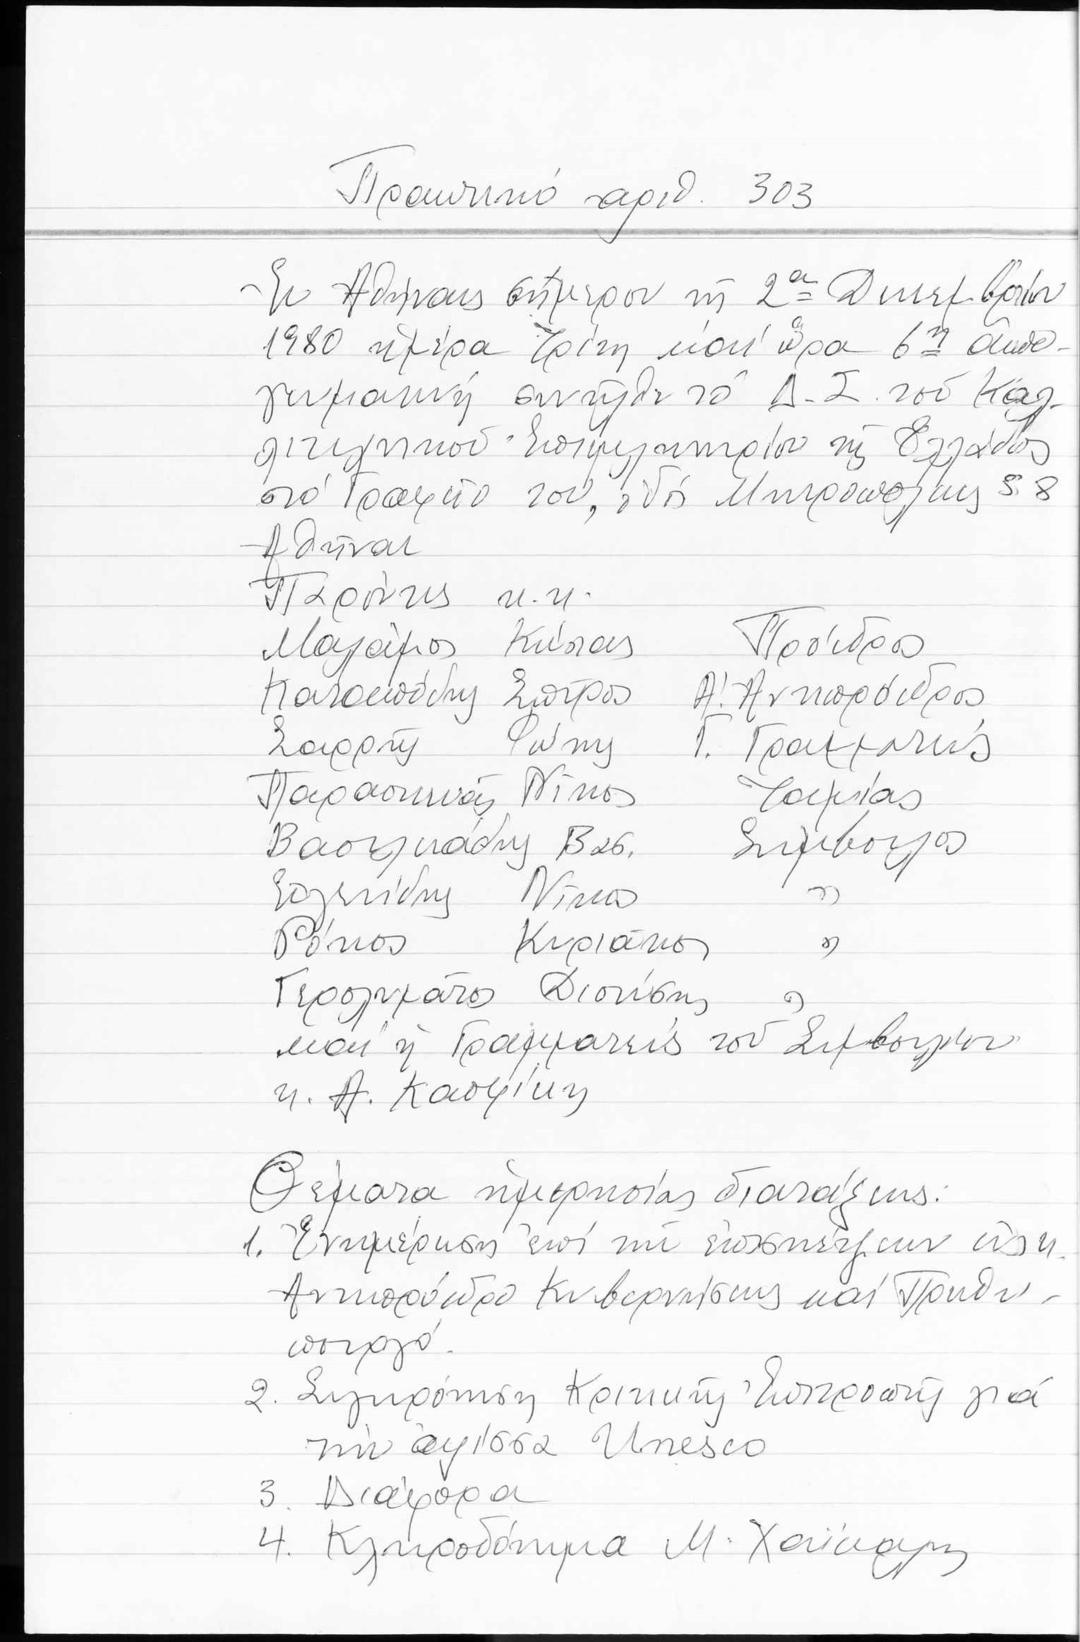 Πρακτικό ἀριθ. 303
Ἐν Ἀθήναις σήμερον τῇ 2α Δεκεμβρίου
1980 ἡμέρα Τρίτη καί ὥρα 6η ἀπο-
γευματινή συνῆλθε τό Δ.Σ. τοῦ Καλ-
λιτεχνικοῦ Ἐπιμελητηρίου τῆς Ἑλλάδος
στό Γραφεῖο του, ὁδός Μητροπόλεως 38
Ἀθῆναι
Παρόντες κ.κ.
Μαλάμος Κώστας Πρόεδρος
Καταπόδης Σπῦρος Α! Ἀντιπρόεδρος
Σαρρῆς Φώτης Γ. Γραμματεύς
Παρασκευᾶς Νῖκος Ταμίας
Βασιλειάδης Βασ. Σύμβουλος
Νῖκος "
Ρόκος Κυριᾶκος "
Γερολυμᾶτος Διονύσης "
καί ἡ Γραμματεύς τοῦ Συμβουλίου
κ. Α. Κασφίκη
Θέματα ἡμερησίας διατάξεως:
1. Ἐνημέρωση ἐπί τῶν ἐπισκέψεων εἰς κ.
Ἀντιπρόεδρο Κυβερνήσεως καί Πρωθυ-
πουργό.
2. Συγκρότηση Κριτικῆς Ἐπιτροπῆς γιά
τήν ἀφίσσα Unesco
3. Διάφορα
4. Κληροδότημα Μ. Χαΐκαλη